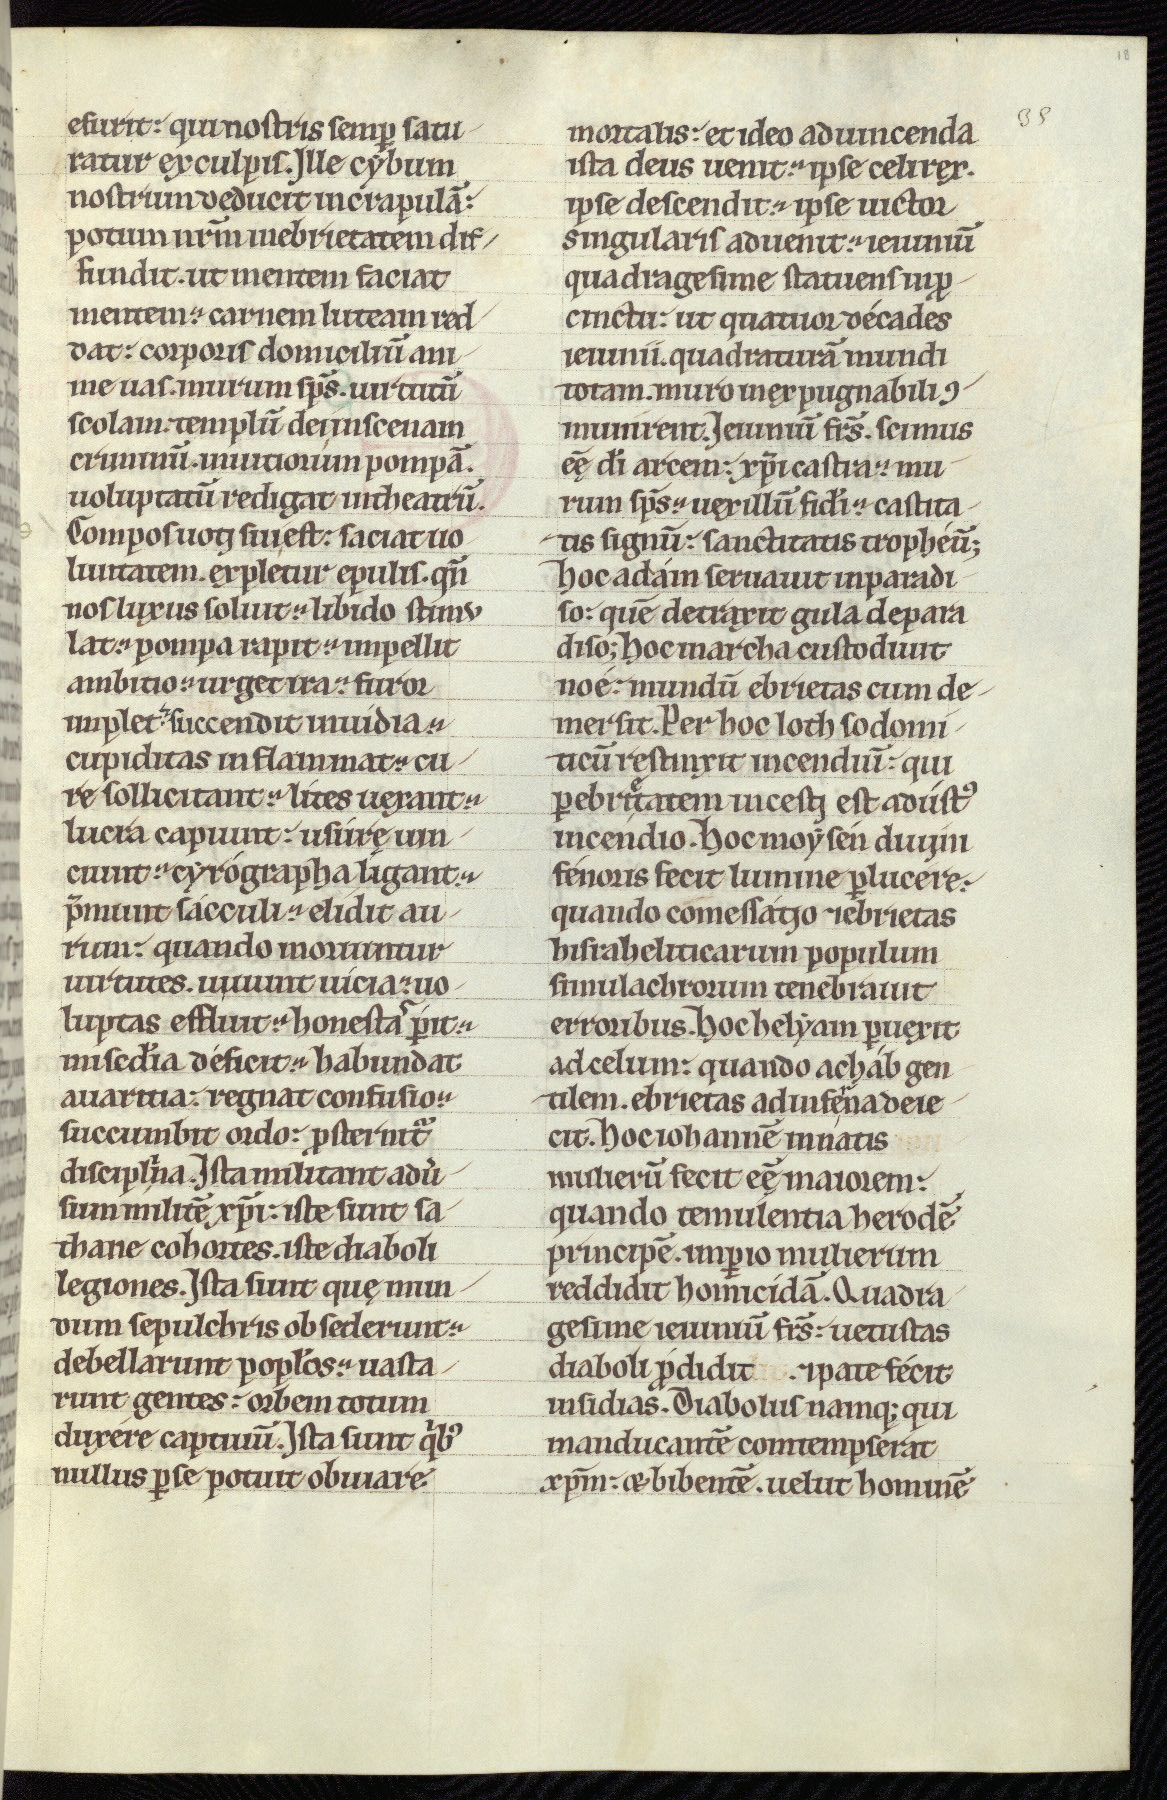 esurit: qui nostris semp̱ satu
ratur ex culpis. Ille cybum
nostrum deducit in crapulā:
potum nr̄m inebrietatem dif
fundit. ut mentem faciat
mentem: carnem luteam red
dat: corporis domiciliū ani
me uas. murum sp̄s. uirtutū
scolam: templū dei in scenam
criminū. in uitiorum pompā.
uoluptatū redigat in theatrū.
Compos uotꝫ sui est: saciat uo
luntatem. expletur epulis. qn̄
nos luxus soluit: libido stimu
lat: pompa rapit: impellit
ambitio: urget ira: furor
implet: succendit inuidia:
cupiditas inflammat: cu
re sollicitant: lites uexant:
lucra capiunt: usure uin
ciunt: cyrographa ligant:
p̄munt sacculi: elidit au
rum: quando moriuntur
uirtutes. uiuunt uicia: uo
luptas effluit: honestas ꝑit:
misedia deficit: habundat
auaritia: regnat confusio:
succumbit ordo: ꝓsternit᷑
disciplina. Ista militant adu̓
sum militē xp̄i: iste sunt sa
thane cohortes. iste diaboli
legiones. Ista sunt quę mun
dum sepulchris obsederunt:
debellarunt poplos: uasta
runt gentes: orbem totum
duxere captiuū. Ista sunt qͥbꝰ
nullus ꝑ se potuit obuiare
18
35
mortalis: et ideo ad uincenda
ista deus uenit: ipse celi rex.
ipse descendit: ipse uictor
singularis aduenit: ieiuniū
quadragesime statuens in ꝓ
cinctu: ut quatuor decades
ieiunii. quadraturā mundi
totam. muro inexpugnabili ꝯ
munirent. Ieiuniū frs̄. scimus
eē di arcem: xp̄i castra: mu
rum sp̄s: uexillū fidi: castita
tis signū: sanctitatis tropheū;
hoc adam seruauit in paradi
so: quē detraxit gula de para
diso; hoc in archa custodiuit
noe: mundū ebrietas cum de
mersit. Per hoc loth sodomi
ticū restinxit incendiū: qui
ꝑ ebrietatem incestꝫ est adustꝰ
incendio. hoc moysen diuini
fenoris fecit lumine ꝑlucere:
quando comessatio ⁊ ebrietas
hisraheliticarum populum
simulachrorum tenebrauit
erroribus. hoc helyam ꝑuexit
ad celum: quando achab gen
tilem. ebrietas ad inferna deie
cit. hoc iohannē in natis
mulierū fecit eē maiorem:
quando temulentia herodē
principē. imꝑio mulierum
reddidit homicidā. Quadra
gesime ieiuniū frs̄: uetustas
diaboli ꝓdidit . ⁊ patefecit
insidias. Diabolus namqꝫ qui
manducantē comtempserat
xp̄m: & bibentē. uelut hominē